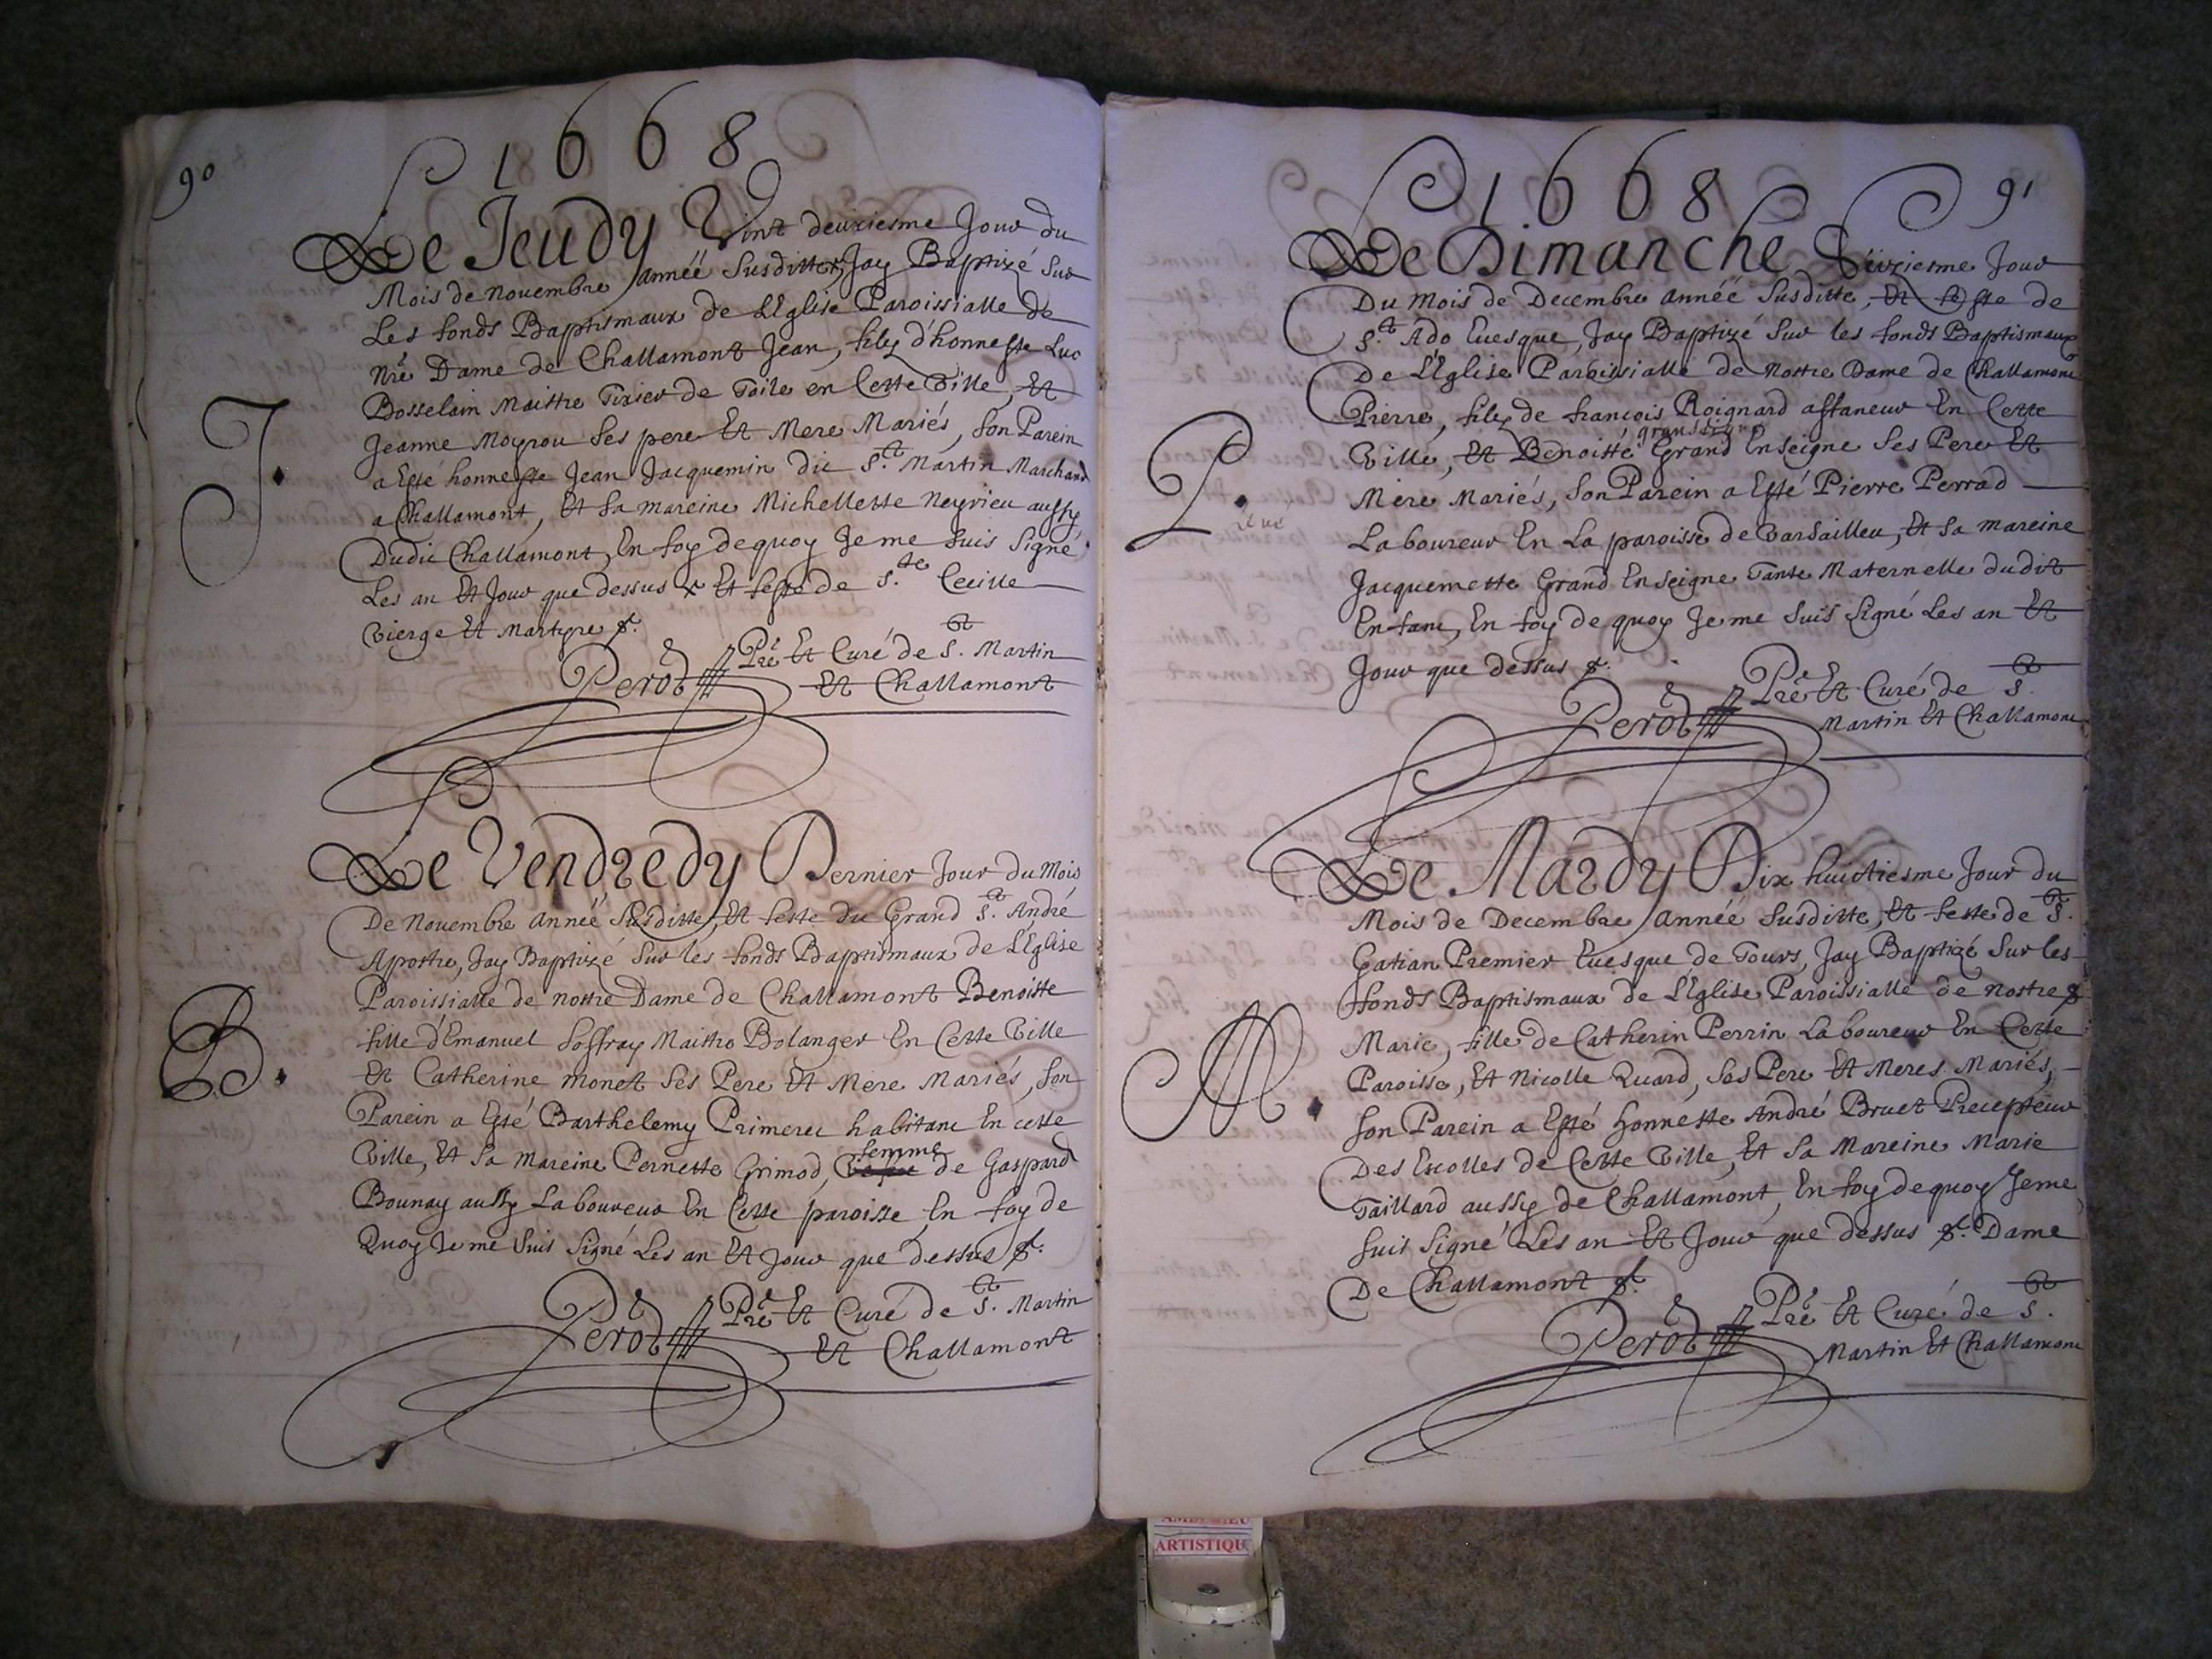 90
1668
Le Jeudy Vint deuxiesme Jour du
Mois de Novembre année Susditte, Jay Baptizé Sur
Les fonds Baptismaux de L'Eglise Paroissialle de
Nrē Dame de Challamont Jean, filz d'honneste Luc
Bosselain Maistre Tixier de Toile en Cette Ville, Et
Jeanne Moyrou Ses pere Et Mere Mariés, Son Parein
a Esté honneste Jean Jacquemin dit St. Martin Marchand
a Challamont, Et Sa mareine Michellette Neyrieu aussy
Dudit Challamont, En foy dequoy Je me Suis Signé
Les an Et Jour que dessus x Et feste de Ste. Cecille
Vierge Et Martyre
J.
Perod Prē Et Curé de St. Martin
Et Challamont
Le Vendredy Dernier Jour du Mois
De Novembre année Susditte, Et feste du Grand St. André
Apostre, Jay Baptizé Sur les fonds Baptismaux de L'Eglise
Paroissialle de nostre Dame de Challamont Benoiste
fille d'Emanuel Soffray Maitre Bolanger En Cette Ville
Et Catherine Monet Ses Pere Et Mere Mariés, Son
Parein a Esté Barthelemy Primeret habitant En cette
femme
Ville, Et Sa Mareine Pernette Grimod, de Gaspard
Bounay aussy Laboureur En Cette paroisse, En foy de
Quoy Je me Suis Signé Les an Et Jour que dessus
B.
Perod Prē Et Curé de St. Martin
Et Challamont
91
1668
Le Dimanche Seiziesme Jour
Du Mois de Decembre année Susditte, Et feste de
St. Ado Evesque, Jay Baptizé Sur les fonds Baptismaux
De L'Eglise Paroissialle de Nostre Dame de Challamont
Pierre, filz de francois Roignard affaneur En Cette
Ville, Et Benoitte Grand Enseigne Ses Pere Et
Mere Mariés, Son Parein a Esté Pierre Perrad
Laboureur En La paroisse de Varsailleu, Et Sa mareine
Jacquemette Grand Enseigne Tante Maternelle dudit
Enfant, En foy de quoy Je me Suis Signé Les an Et
Jour que dessus
P.
Perod Prē Et Curé de St.
Martin Et Challamont
Le Mardy Dix huictiesme Jour du
Mois de Decembre année Susditte, Et feste de St.
Gatian Premier Evesque de Tours, Jay Baptizé Sur les
fonds Baptismaux de L'Eglise Paroissialle de Nostre
Marie, fille de Catherin Perrin Laboureur En Cette
Paroisse, Et Nicolle Quard, Ses Pere Et Meres Mariés,
Son Parein a Esté honneste André Bruet Precepteur
Des Escolles de Cette Ville, Et Sa Mareine Marie
Taillard aussy de Challamont, En foy dequoy Je me
Suis Signé Les an Et Jour que dessus Dame
De Challamont
M.
Perod Prē Et Curé de St.
Martin Et Challamont
ARTISTIQU